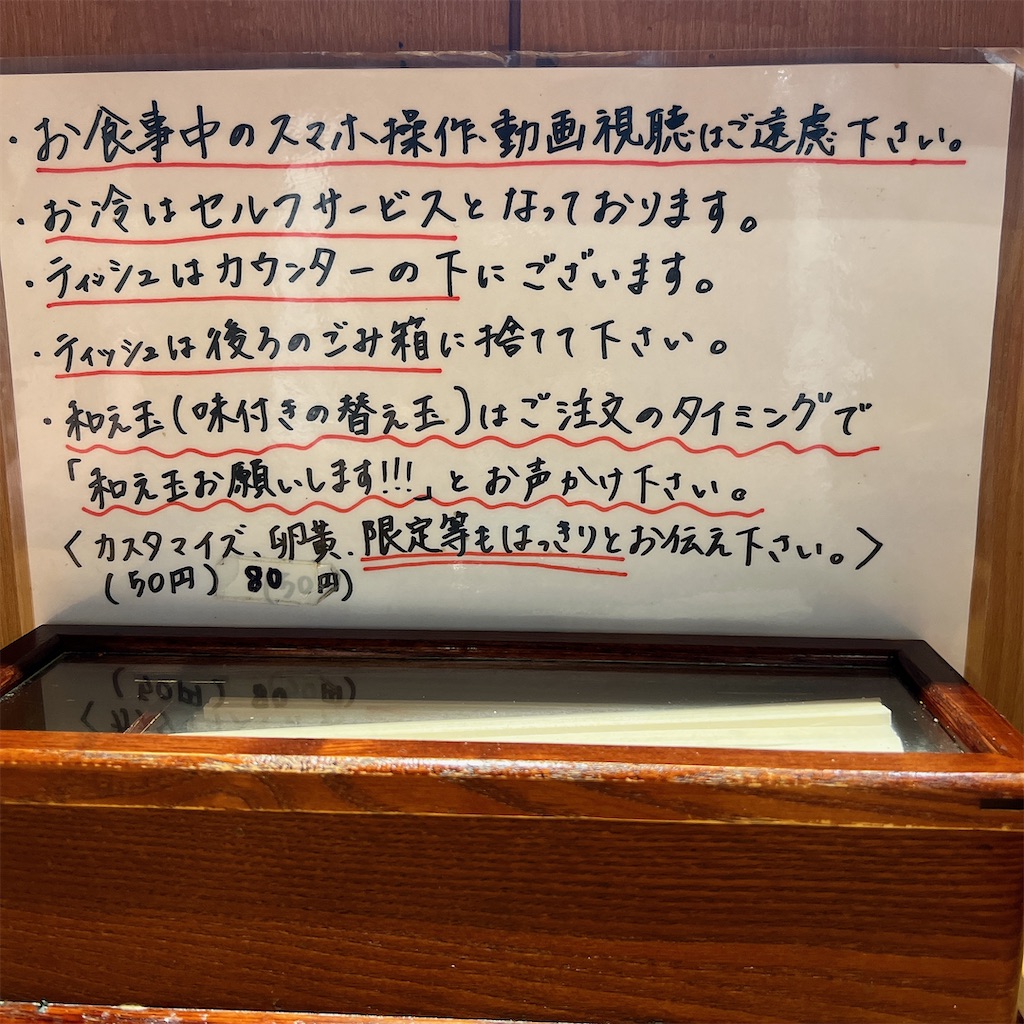 ・お食事中のスマホ操作、動画視聴はご遠慮下さい。
・お冷はセルフサービスとなっております。
・ティッシュはカウンターの下にございます。
・ティッシュは後ろのごみ箱に捨てて下さい。
・和え玉(味付きの替え玉)はご注文のタイミングで
「和え玉お願いします!!!」とお声かけ下さい。
〈カスタマイズ、卵黄、限定等もはっきりとお伝え下さい。〉
(50円) 80(50円)